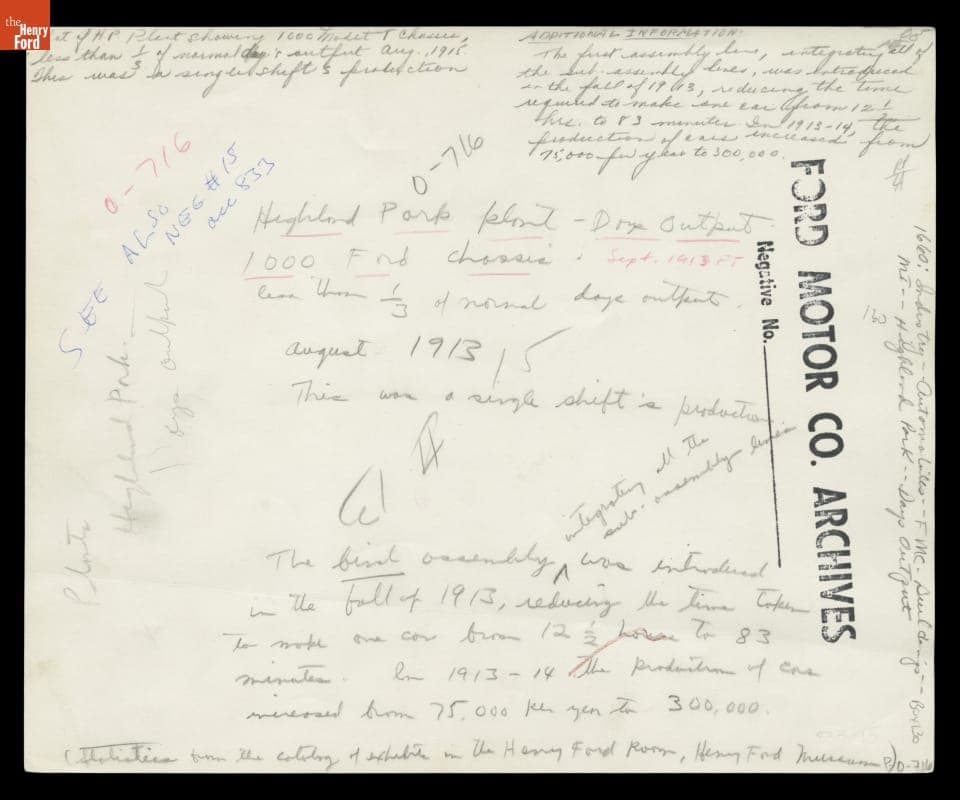 the
Henry
Ford
of HP Plant showing 1000 Model T Chassis,
less than 1/3 of normal day's output Aug. 1915
This was a single shift's production
ADDITIONAL INFORMATION:
The first assembly line, integrating all of
the sub-assembly lines, was introduced
in the fall of 1913, reducing the time
required to make one car from 12 1/2
hrs. to 83 minutes. In 1913-14, the
production of cars increased from
75,000 per year to 300,000.
O-716
O-716
SEE ALSO NEG #15
acc 833
Highland Park plant - Days Output
1000 Ford chassis. Sept. 1913 FT
less than 1/3 of normal days output.
august 1913 15
This was a single shift's production
Plants
Highland Park
1 days output
integrating all the
sub-assembly lines
The first assembly ^ was introduced
in the fall of 1913, reducing the time taken
to make one car from 12 1/2 hours to 83
minutes. In 1913-14 the production of cars
increased from 75,000 per year to 300,000.
(Statistics from the catalog of exhibits in the Henry Ford Room, Henry Ford Museum
O-716
FORD MOTOR CO. ARCHIVES
Negative No.
1660: Industry--Automobiles--FMC-Buildings--Box 130
MI--Highland Park--Days Output
130